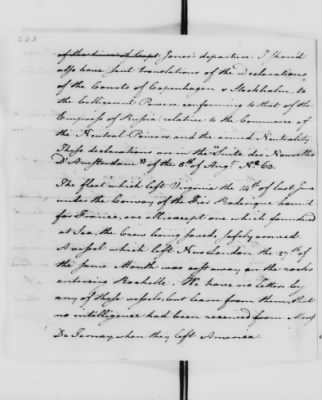 223
of the time of Capt. Jones's departure. I should
also have sent translations of the Declarations
of the Courts of Copenhagen & Stockholm to
the belligerent Powers, conforming to that of the
Empress of Russia relative to the Commerce of
the Neutral Powers and the armed Neutrality.
These declarations are in the "Suite des Nouvelles
D'Amsterdam" of the 8th of Augt. No. 63.
The fleet which left Virginia the 14th of last June
under the Convoy of the Fier Rodrigue bound
for France, are all except one which foundered
at Sea, the Crew being saved, safely arrived.
A vessel which left New London the 27th of
the same Month was cast away on the rocks
entering Rochelle. We have no letters by
any of these vessels, but learn from them that
no intelligence had been received from Monsr
De Ternay when they left America.